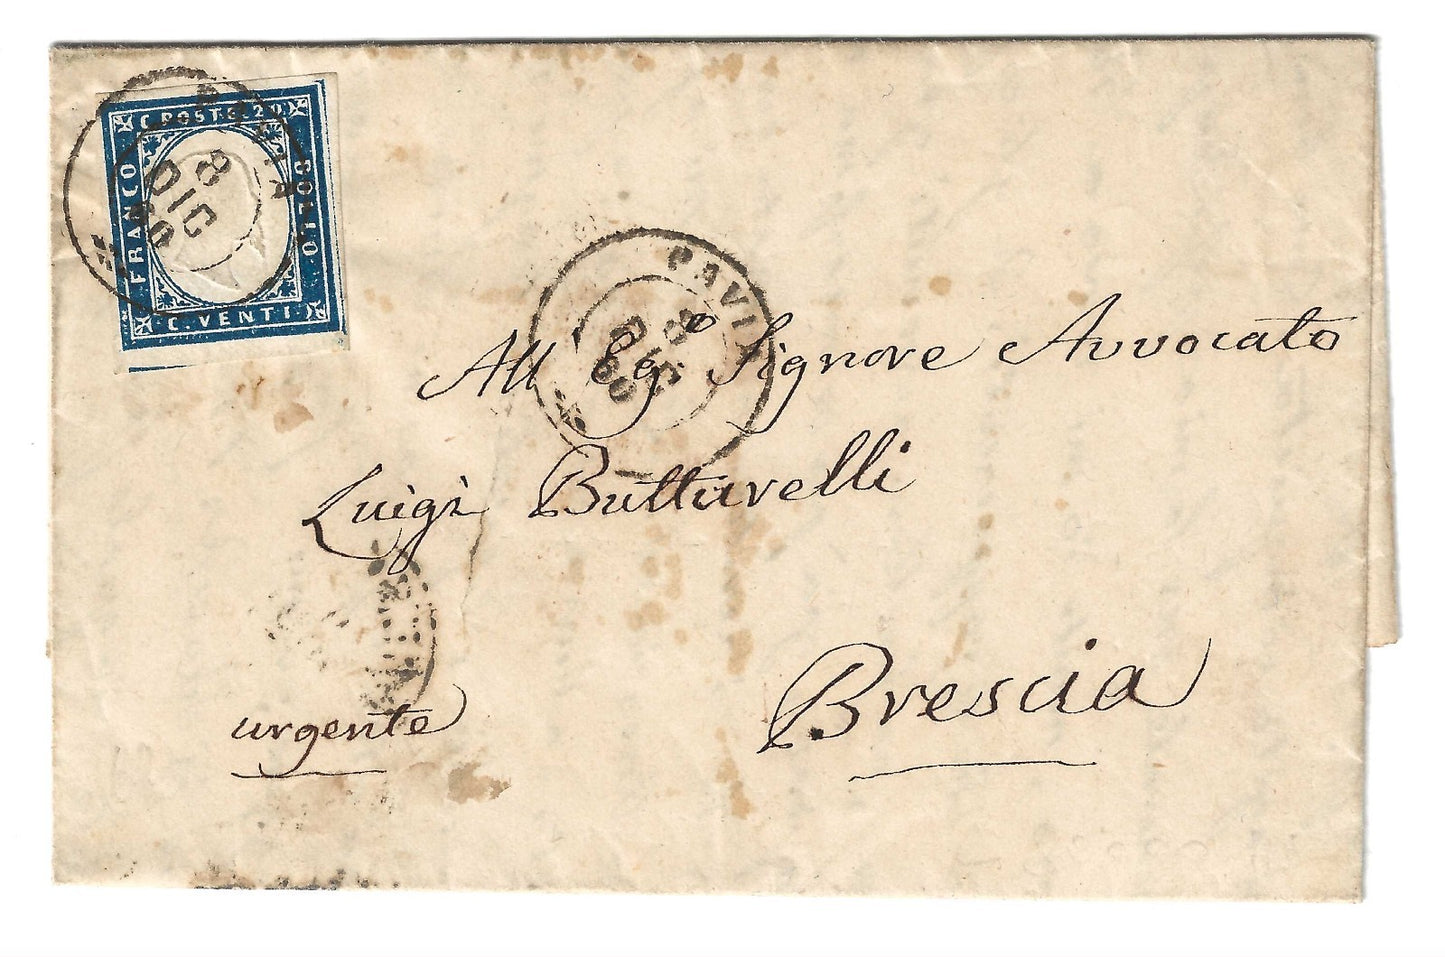 C. POSTE 20.
FRANCO
BOLLO.
C. VENTI.
PAVIA
8
DIC
60
PAVIA
8
DIC
60
All' Eg.º Signore Avvocato
Luigi Butturelli
Brescia
urgente